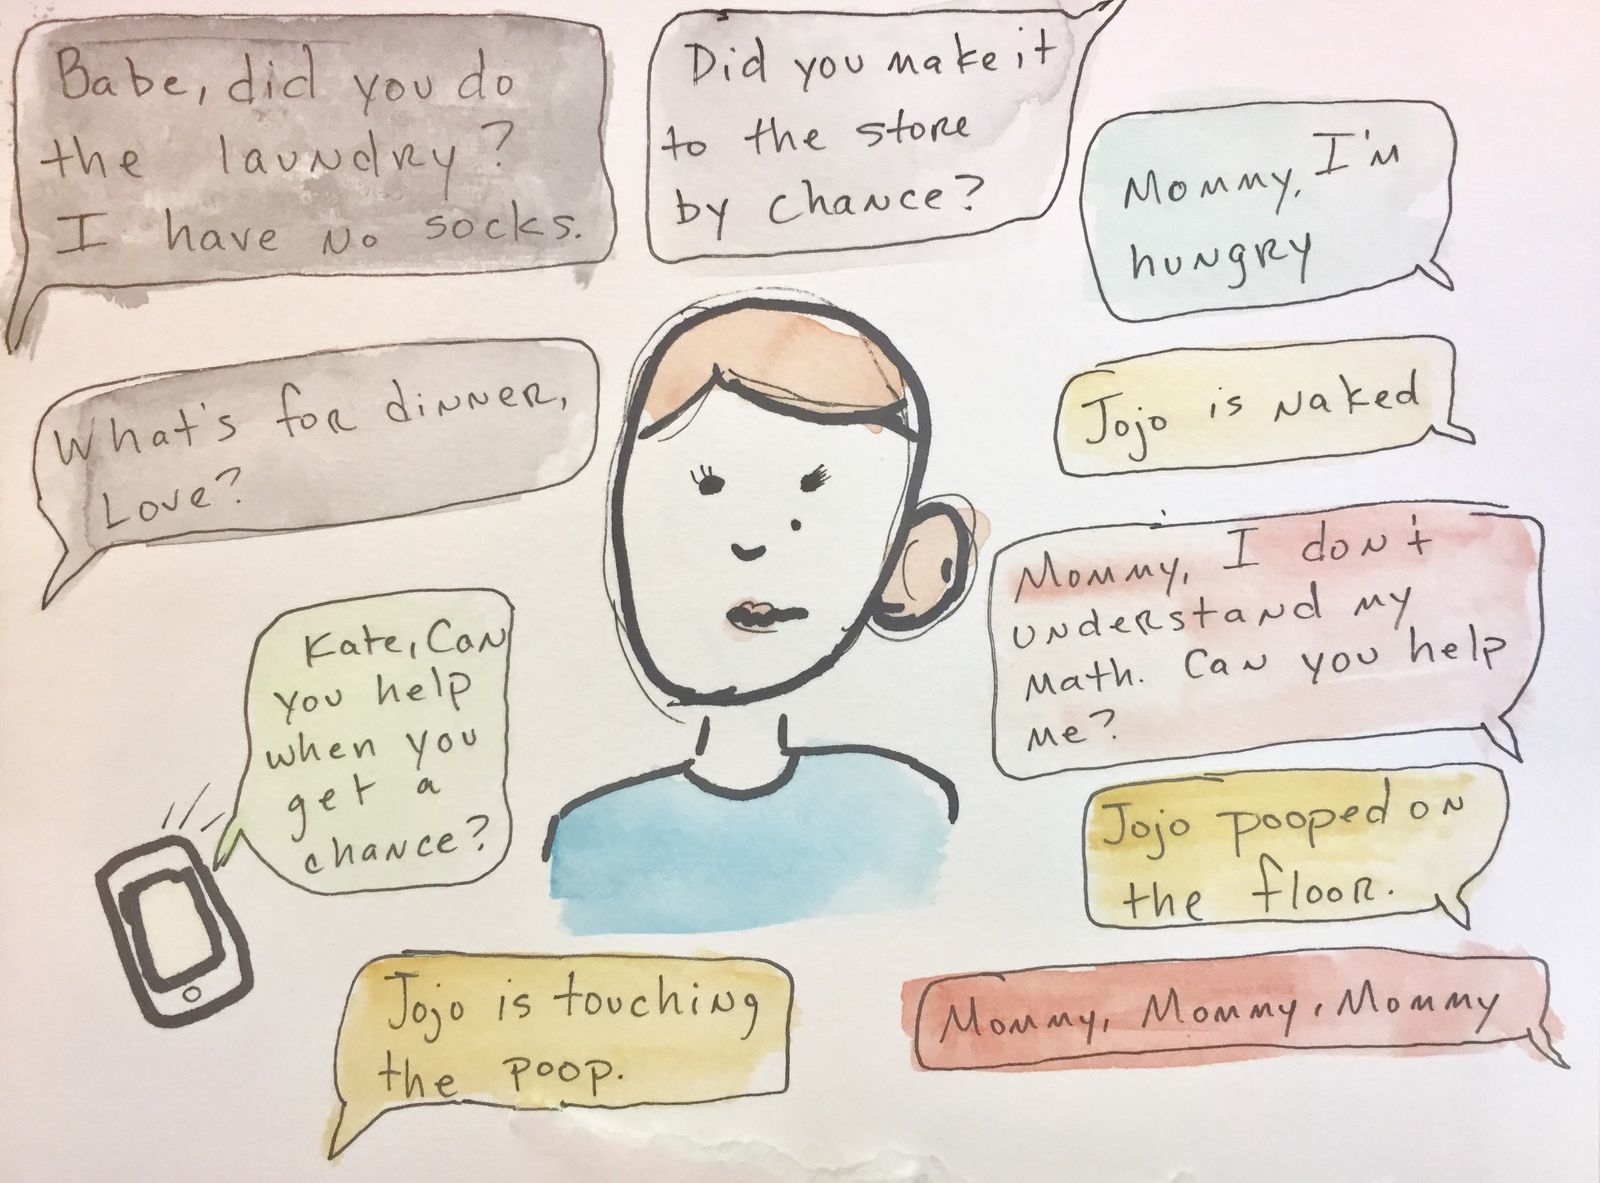 Babe, did you do
the laundry?
I have no socks.
Did you make it
to the store
by chance?
Mommy, I'm
hungry
What's for dinner,
Love?
Jojo is naked
Mommy, I don't
understand my
math. Can you help
me?
Kate, Can
you help
when you
get a
chance?
Jojo pooped on
the floor.
Jojo is touching
the poop.
Mommy, Mommy, Mommy